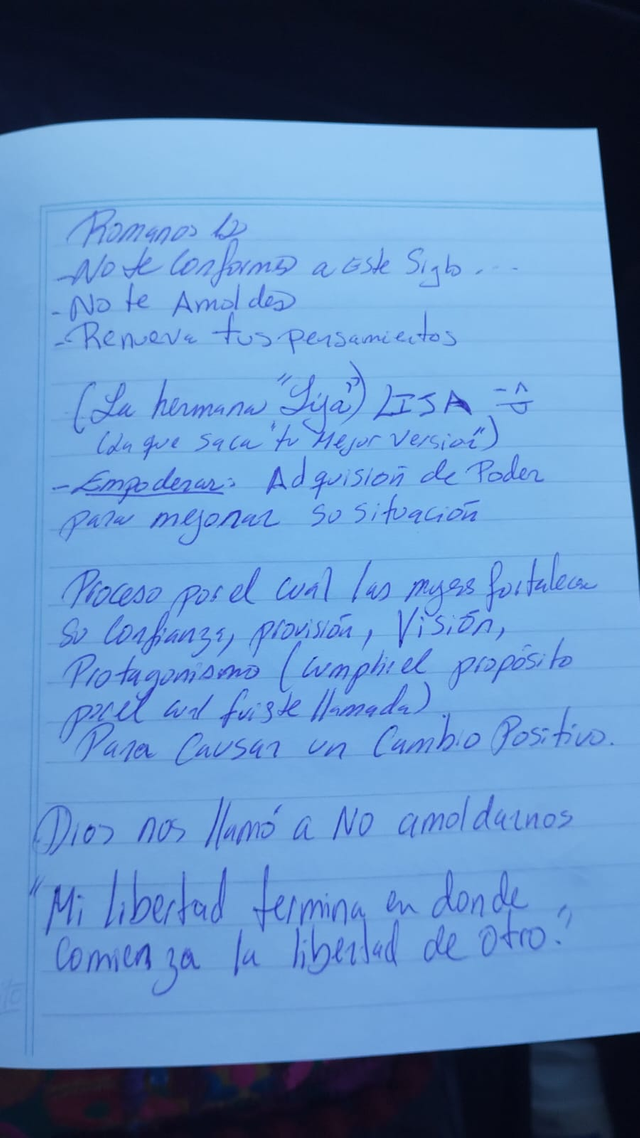 Romanos 12
- No te conformes a este Siglo ...
- No te Amoldes
- Renueva tus pensamientos
(La hermana "Lija") LISA
(La que saca "tu Mejor Versión")
- Empoderar: Adquisión de Poder
para mejorar su situación
Proceso por el cual las mujeres fortalecen
su confianza, provisión, Visión,
Protagonismo (cumplir el propósito
por el cual fuiste llamada)
Para Causar un Cambio Positivo.
Dios nos llamó a No amoldarnos
"Mi libertad termina en donde
comienza la libertad de otro."